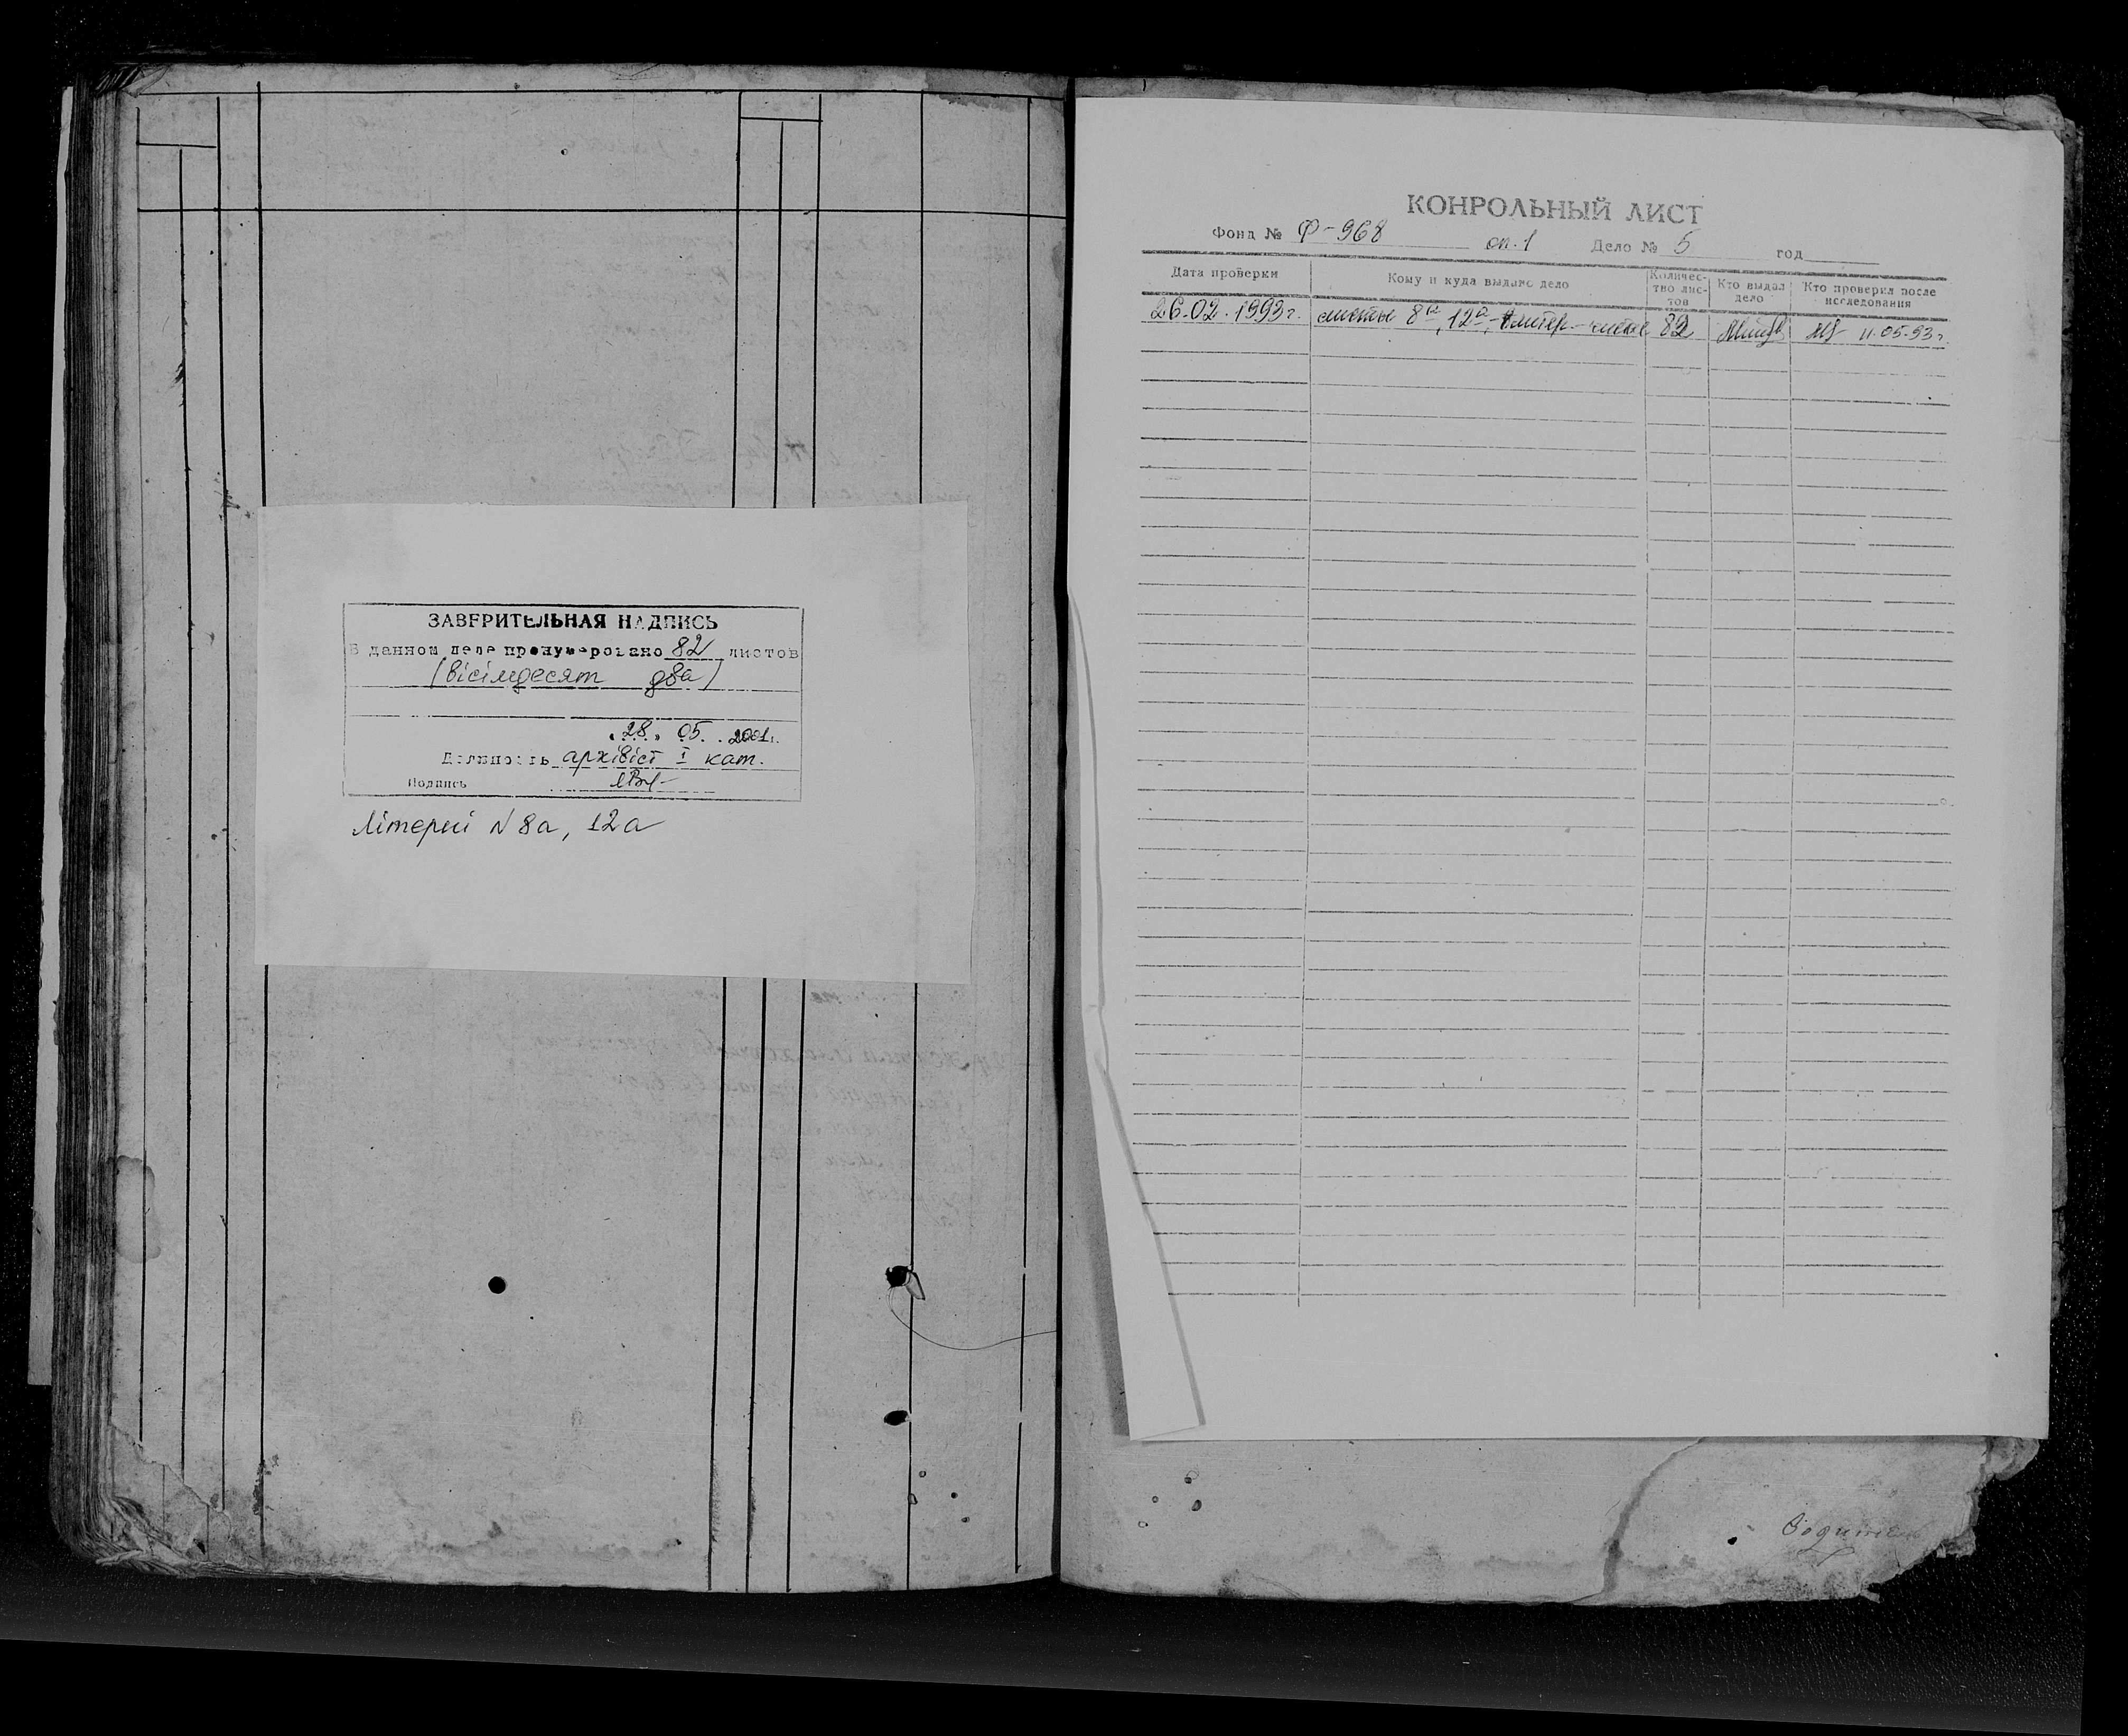 ЗАВЕРИТЕЛЬНАЯ НАДПИСЬ
В данном деле пронумеровано 82 листов
(вісімдесят два)
"28" 05. 2001г.
Должность архівіст I кат.
Подпись
Літерні N 8а, 12а
КОНРОЛЬНЫЙ ЛИСТ
Фонд № Ф-968 оп.1 Дело № 5 год
Дата проверки Кому и куда выдано дело Количество листов Кто выдал дело Кто проверил после исследования
26.02.1993г. листы 8а, 12а - литер. - чистые 82 11.05.93г.